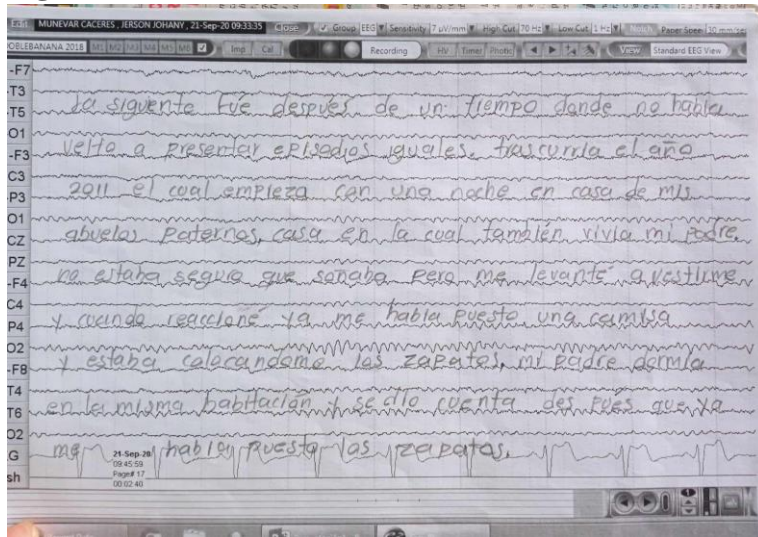 Exit MUNEVAR CACERES, JERSON JOHANY, 21-Sep-20 09:33:35 Close Group EEG Sensitivity 7 uV/mm High Cut 70 Hz Low Cut 1 Hz Notch Paper Speed 30 mm/sec
OBLEBANANA 2018 M1 M2 M3 M4 M5 M6 Imp Cal Recording HV Timer Photic View Standard EEG View
-F7
T3
La siguente Fue después de un tiempo donde no habia
T5
O1
velto a presentar episodios iguales. trascurria el año
-F3
C3
2011 el cual empieza con una noche en casa de mis
P3
O1
abuelos paternos, casa en la cual también vivia mi padre.
CZ
PZ
no estaba seguro que soñaba pero me levanté a vestirme
-F4
C4
y cuando reaccioné ya me habia puesto una camisa
P4
O2
y estaba colocandome los zapatos, mi padre dormia
-F8
T4
en la misma habitación y se dio cuenta des pués que ya
T6
O2
me habia puesto los zapatos.
G
sh
21-Sep-20
09:45:59
Page# 17
00:02:40